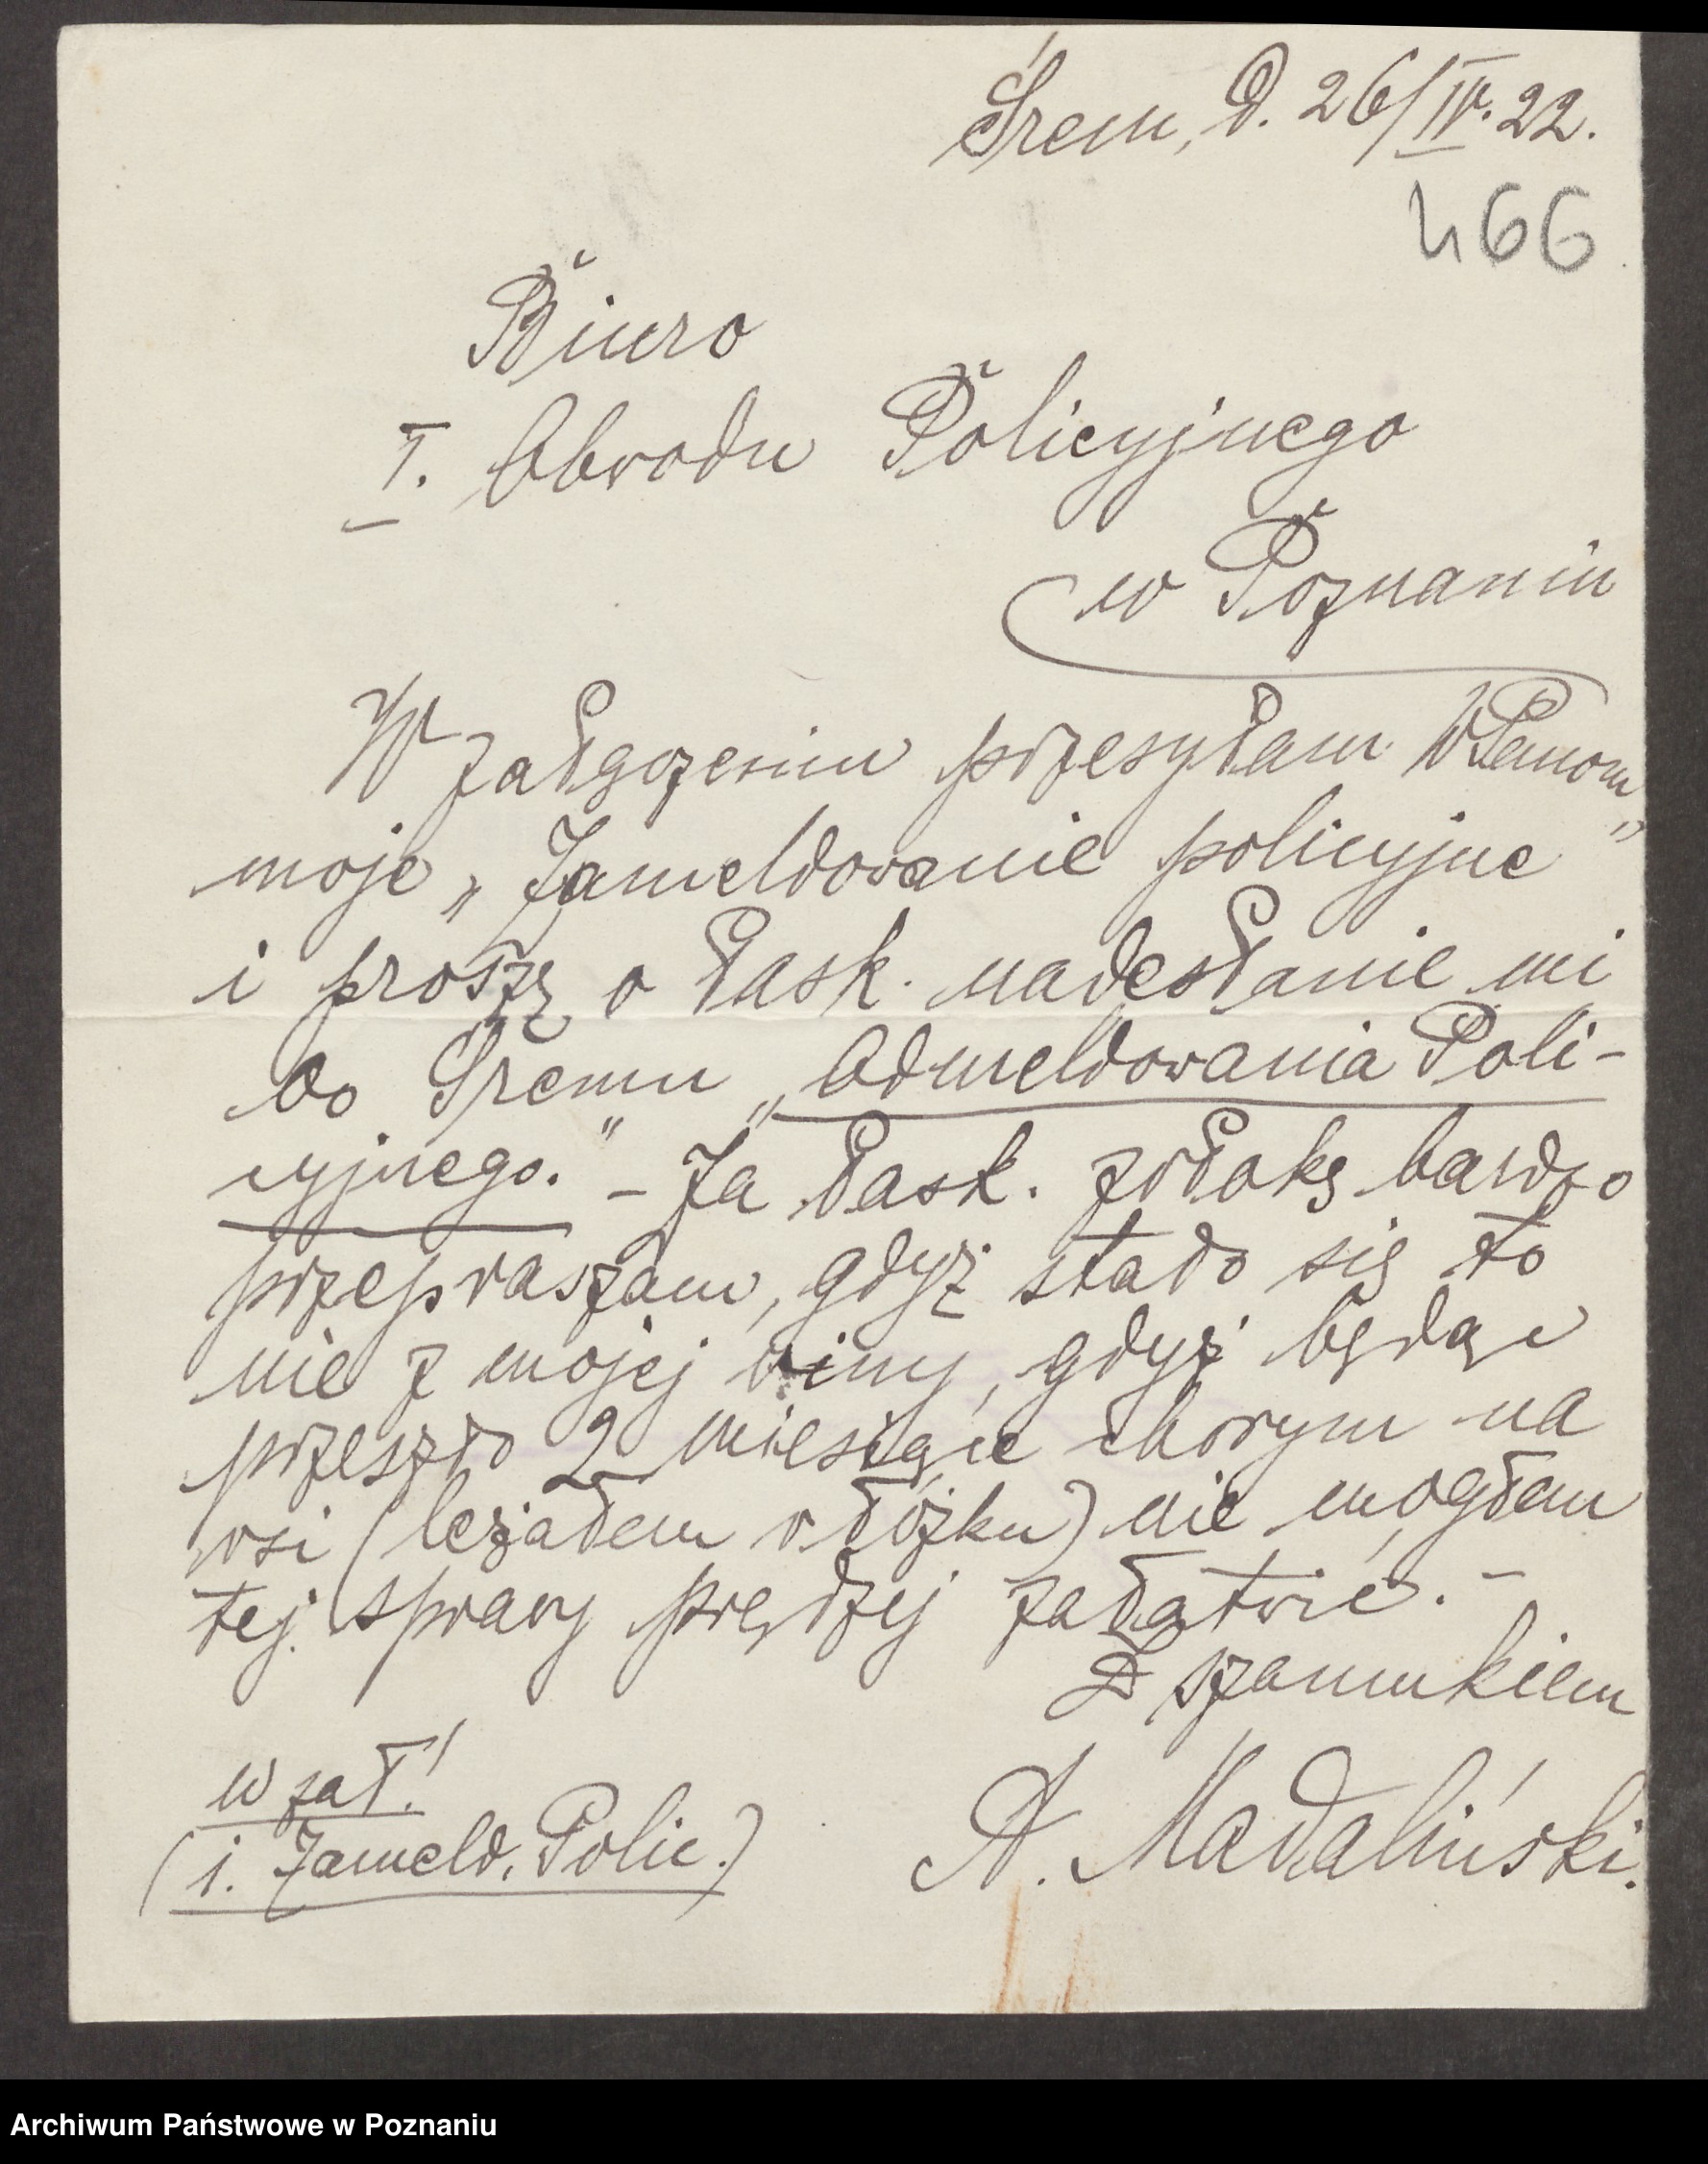 Śrem, d. 26/IV. 22.
466
Biuro
I. Obwodu Policyjnego
w Poznaniu
W załączeniu przesyłam WPanom
moje „Zameldowanie policyjne”
i proszę o łask. nadesłanie mi
do Śremu „Odmeldowania Poli-
cyjnego.” – Za łask. zwłokę bardzo
przepraszam, gdyż stało się to
nie z mojej winy, gdyż będąc
przeszło 2 miesiące chorym na
wsi (leżałem w łóżku) nie mogłem
tej sprawy prędzej załatwić. –
Z szacunkiem
A. Madaliński.
w zał!
(1. Zameld. Polic.)
Archiwum Państwowe w Poznaniu